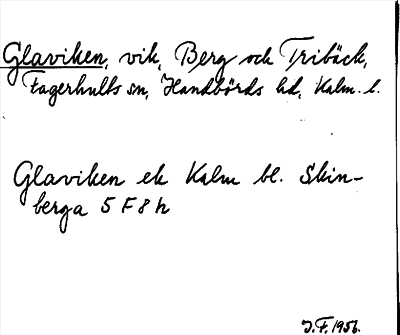 Glaviken, vik, Berg och Tribäck,
Fagerhults sn, Handbörds hd, Kalm. l.
Glaviken ek Kalm bl. Skin-
berga 5 F 8 h
J.F. 1956.